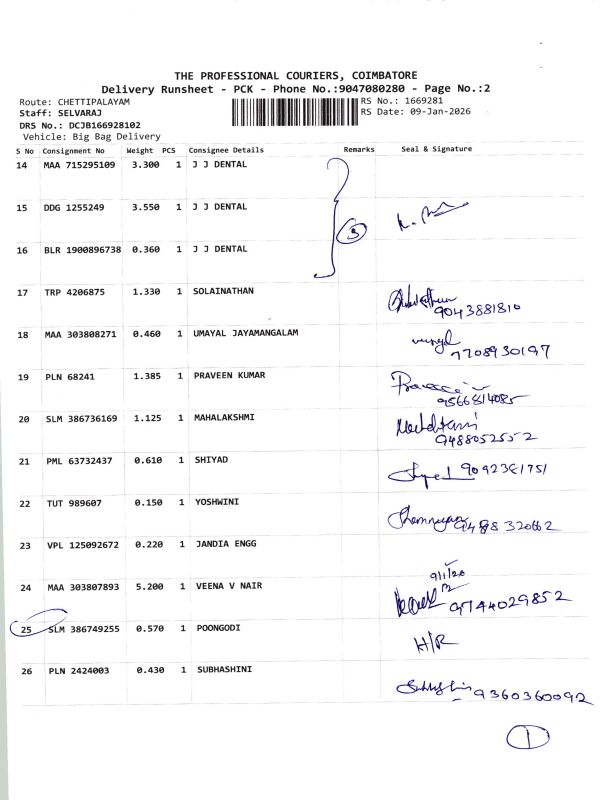 THE PROFESSIONAL COURIERS, COIMBATORE
Delivery Runsheet - PCK - Phone No.:9047080280 - Page No.:2
Route: CHETTIPALAYAM
RS No.: 1669281
Staff: SELVARAJ
RS Date: 09-Jan-2026
DRS No.: DCJB166928102
Vehicle: Big Bag Delivery
S No Consignment No Weight PCS Consignee Details Remarks Seal & Signature
14 MAA 715295109 3.300 1 J J DENTAL
15 DDG 1255249 3.550 1 J J DENTAL 3
16 BLR 1900896738 0.360 1 J J DENTAL
17 TRP 4206875 1.330 1 SOLAINATHAN
9043881810
18 MAA 303808271 0.460 1 UMAYAL JAYAMANGALAM
7708930197
19 PLN 68241 1.385 1 PRAVEEN KUMAR
9566814085
20 SLM 386736169 1.125 1 MAHALAKSHMI
9488052552
21 PML 63732437 0.610 1 SHIYAD 9092381751
22 TUT 989607 0.150 1 YOSHWINI
320662
23 VPL 125092672 0.220 1 JANDIA ENGG
24 MAA 303807893 5.200 1 VEENA V NAIR
9744029852
25 SLM 386749255 0.570 1 POONGODI H/R
26 PLN 2424003 0.430 1 SUBHASHINI
9360360092
1